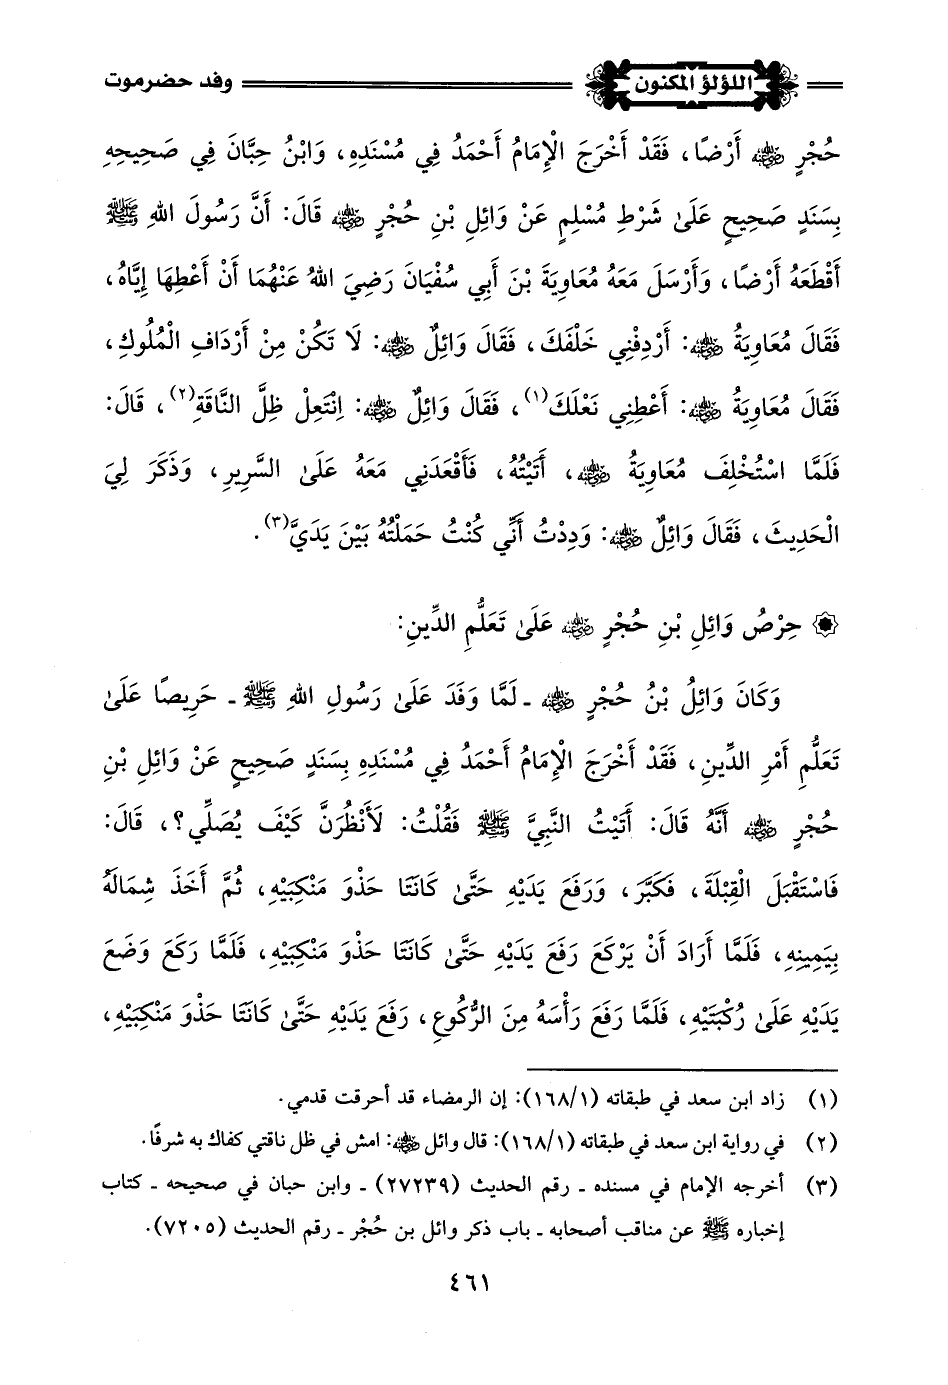 اللؤلؤ المكنون
وفد حضرموت
حُجْرٍ رضي الله عنه أَرْضًا، فَقَدْ أَخْرَجَ الْإِمَامُ أَحْمَدُ فِي مُسْنَدِهِ، وَابْنُ حِبَّانَ فِي صَحِيحِهِ
بِسَنَدٍ صَحِيحٍ عَلَىٰ شَرْطِ مُسْلِمٍ عَنْ وَائِلِ بْنِ حُجْرٍ رضي الله عنه قَالَ: أَنَّ رَسُولَ اللهِ ﷺ
أَقْطَعَهُ أَرْضًا، وَأَرْسَلَ مَعَهُ مُعَاوِيَةَ بْنَ أَبِي سُفْيَانَ رَضِيَ اللهُ عَنْهُمَا أَنْ أَعْطِهَا إِيَّاهُ،
فَقَالَ مُعَاوِيَةُ رضي الله عنه: أَرْدِفْنِي خَلْفَكَ، فَقَالَ وَائِلٌ رضي الله عنه: لَا تَكُنْ مِنْ أَرْدَافِ الْمُلُوكِ،
فَقَالَ مُعَاوِيَةُ رضي الله عنه: أَعْطِنِي نَعْلَكَ(١)، فَقَالَ وَائِلٌ رضي الله عنه: اِنْتَعِلْ ظِلَّ النَّاقَةِ(٢)، قَالَ:
فَلَمَّا اسْتُخْلِفَ مُعَاوِيَةُ رضي الله عنه، أَتَيْتُهُ، فَأَقْعَدَنِي مَعَهُ عَلَىٰ السَّرِيرِ، وَذَكَرَ لِيَ
الْحَدِيثَ، فَقَالَ وَائِلٌ رضي الله عنه: وَدِدْتُ أَنِّي كُنْتُ حَمَلْتُهُ بَيْنَ يَدَيَّ(٣).
۞ حِرْصُ وَائِلِ بْنِ حُجْرٍ رضي الله عنه عَلَىٰ تَعَلُّمِ الدِّينِ:
وَكَانَ وَائِلُ بْنُ حُجْرٍ رضي الله عنه - لَمَّا وَفَدَ عَلَىٰ رَسُولِ اللهِ ﷺ - حَرِيصًا عَلَىٰ
تَعَلُّمِ أَمْرِ الدِّينِ، فَقَدْ أَخْرَجَ الْإِمَامُ أَحْمَدُ فِي مُسْنَدِهِ بِسَنَدٍ صَحِيحٍ عَنْ وَائِلِ بْنِ
حُجْرٍ رضي الله عنه أَنَّهُ قَالَ: أَتَيْتُ النَّبِيَّ ﷺ فَقُلْتُ: لَأَنْظُرَنَّ كَيْفَ يُصَلِّي؟، قَالَ:
فَاسْتَقْبَلَ الْقِبْلَةَ، فَكَبَّرَ، وَرَفَعَ يَدَيْهِ حَتَّىٰ كَانَتَا حَذْوَ مَنْكِبَيْهِ، ثُمَّ أَخَذَ شِمَالَهُ
بِيَمِينِهِ، فَلَمَّا أَرَادَ أَنْ يَرْكَعَ رَفَعَ يَدَيْهِ حَتَّىٰ كَانَتَا حَذْوَ مَنْكِبَيْهِ، فَلَمَّا رَكَعَ وَضَعَ
يَدَيْهِ عَلَىٰ رُكْبَتَيْهِ، فَلَمَّا رَفَعَ رَأْسَهُ مِنَ الرُّكُوعِ، رَفَعَ يَدَيْهِ حَتَّىٰ كَانَتَا حَذْوَ مَنْكِبَيْهِ،
(١) زاد ابن سعد في طبقاته (١٦٨/١): إن الرمضاء قد أحرقت قدمي.
(٢) في رواية ابن سعد في طبقاته (١٦٨/١): قال وائل رضي الله عنه: امش في ظل ناقتي كفاك به شرفًا.
(٣) أخرجه الإمام في مسنده - رقم الحديث (٢٧٢٣٩) - وابن حبان في صحيحه - كتاب
إخباره ﷺ عن مناقب أصحابه - باب ذكر وائل بن حُجْر - رقم الحديث (٧٢٠٥).
٤٦١